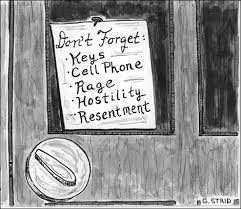 Don't Forget:
· Keys
· Cell Phone
· Rage
· Hostility
· Resentment
G. STRID